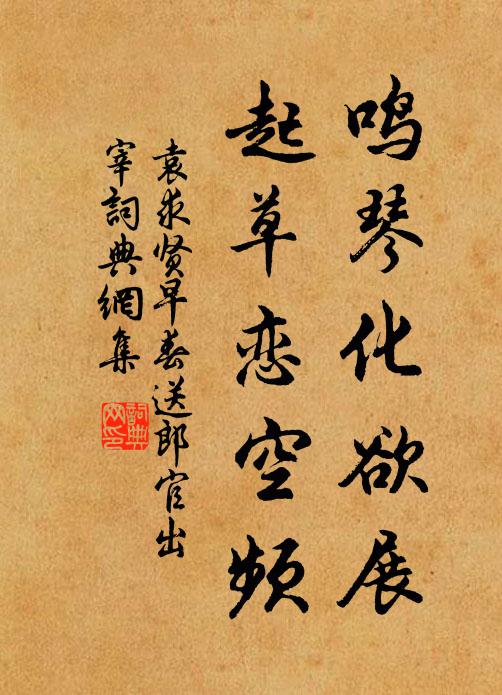 鸣琴化欲展
起草恋空频
袁求贤早春送郎官出
宰詞典網集
詞典
网印